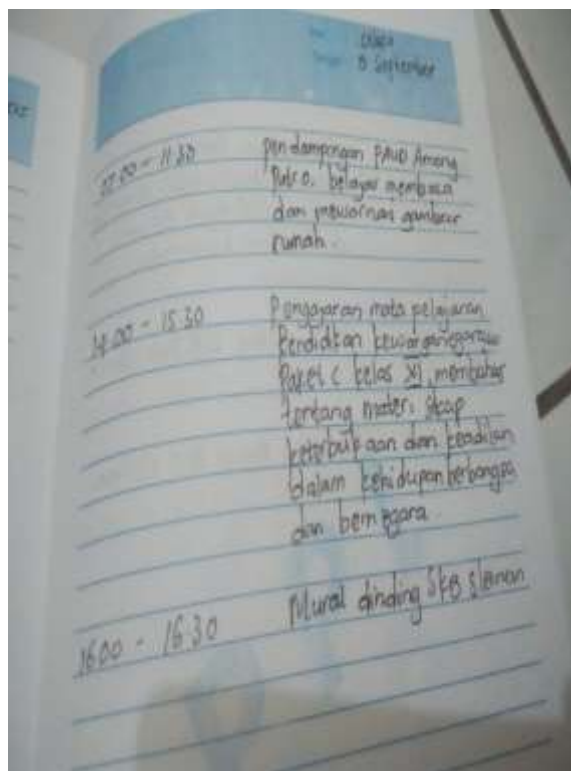 8 September
07.00 - 11.30 pendampingan PAUD Among
Putro, belajar membaca
dan mewarnai gambar
rumah.
14.00 - 15.30 Pengajaran mata pelajaran
Pendidikan kewarganegaraan
Paket C kelas XI, membahas
tentang materi sikap
keterbukaan dan keadilan
dalam kehidupan berbangsa
dan bernegara
16.00 - 16.30 Mural dinding SKB Sleman